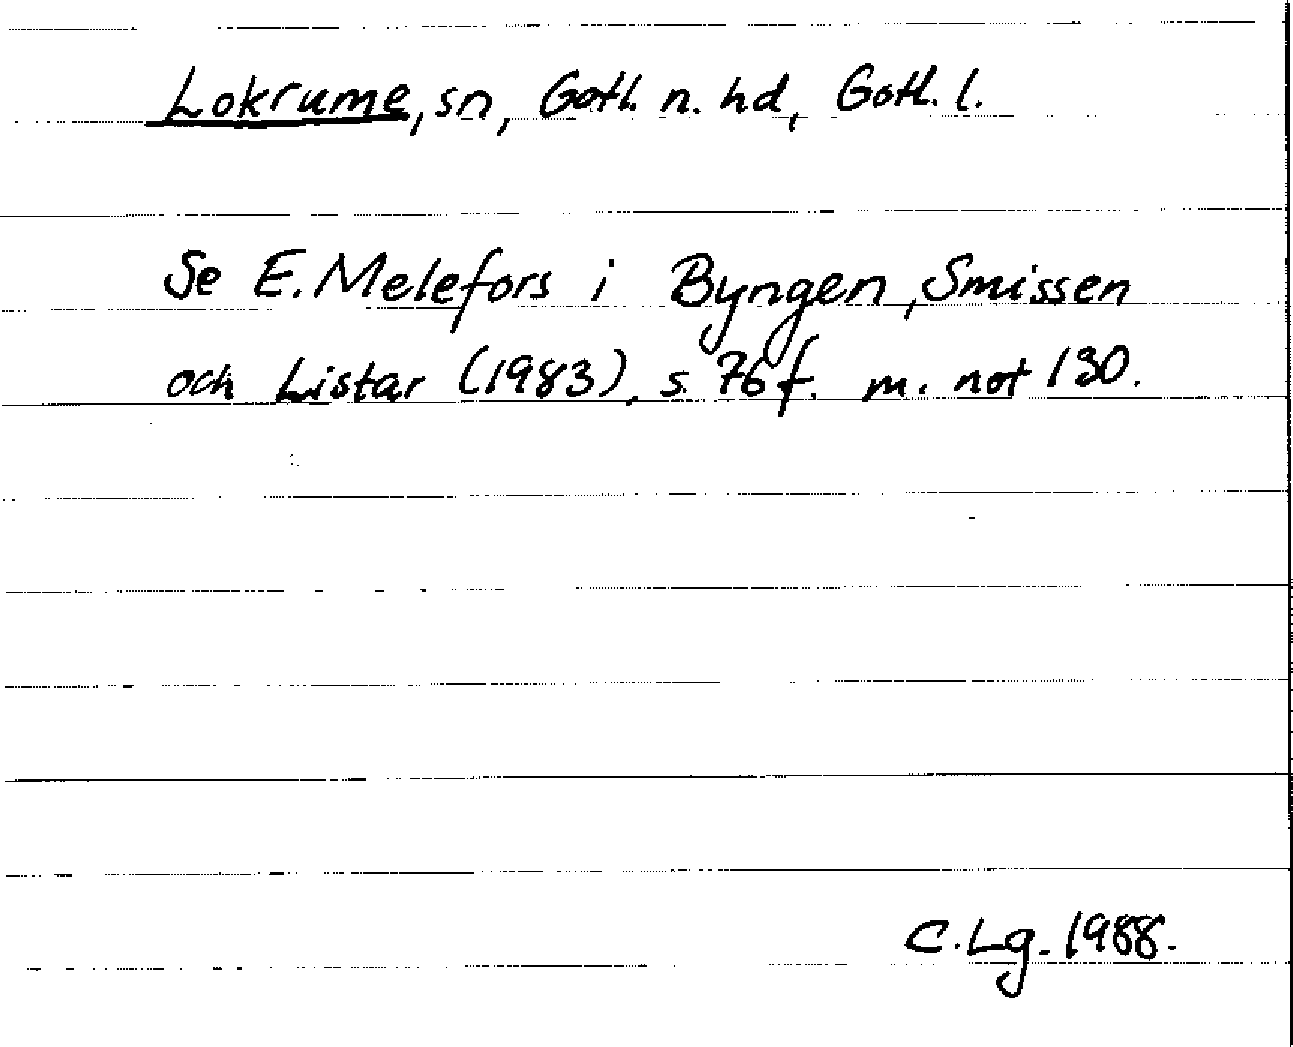 Lokrume, sn, Gotl. n. hd, Gotl. l.
Se E. Melefors i Byngen, Smissen
och Listar (1983), s. 76 f. m. not 130.
C. Lg. 1988.